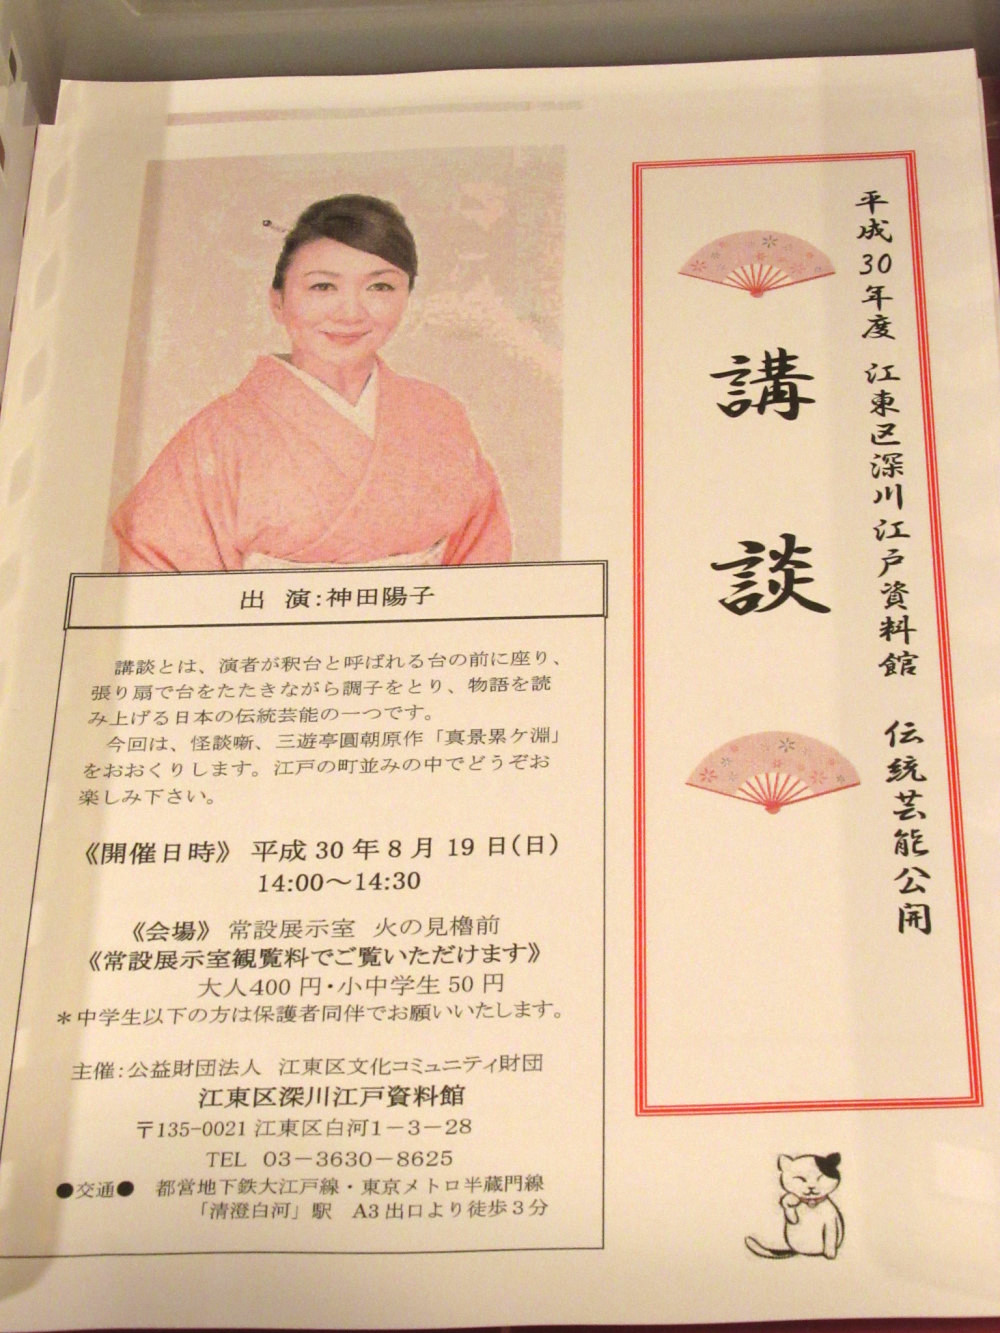 平成30年度 江東区深川江戸資料館 伝統芸能公開
講談
出 演:神田陽子
講談とは、演者が釈台と呼ばれる台の前に座り、
張り扇で台をたたきながら調子をとり、物語を読
み上げる日本の伝統芸能の一つです。
今回は、怪談噺、三遊亭圓朝原作「真景累ケ淵」
をおおくりします。江戸の町並みの中でどうぞお
楽しみ下さい。
《開催日時》 平成 30 年 8 月 19 日(日)
14:00~14:30
《会場》 常設展示室 火の見櫓前
《常設展示室観覧料でご覧いただけます》
大人400 円・小中学生 50 円
*中学生以下の方は保護者同伴でお願いいたします。
主催:公益財団法人 江東区文化コミュニティ財団
江東区深川江戸資料館
〒135-0021 江東区白河1-3-28
TEL 03-3630-8625
●交通● 都営地下鉄大江戸線・東京メトロ半蔵門線
「清澄白河」駅 A3 出口より徒歩3分